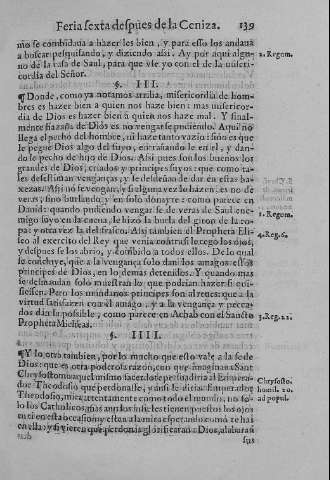 Feria sexta despues de la Ceniza. 139
mo se combidaua a hazerles bien, y para esso los andaua
a buscar pesquisando, y diziendo assi. Ay por aqui algu-
no de la casa de Saul, para que vse yo con el de la miseri-
cordia del Señor.
2. Regum.
§. III.
¶ Donde, como ya notamos arriba, misericordia de hom-
bres es hazer bien a quien nos haze bien: mas misericor-
dia de Dios es hazer bien a quien nos haze mal. Y final-
mente hazaña de Dios es no vengarse pudiendo. Aqui no
llega el pecho del hombre, ni haze tanto vazio: sino es que
le pegue Dios algo del suyo, entrañandole en el, y dan-
dole pecho de hijo de Dios. Assi pues son los buenos los
grandes de Dios, criados y principes suyos: que como ta-
les desestiman venganças, y se desdeñan de dar en essas ba-
xezas. Assi no se vengan, y si alguna vez lo hazen, es no de
veras, sino burlando, y en solo donayre: como parece en
Dauid: quando pudiendo vengarse de veras de Saul ene-
migo suyo en la cueua, le hizo la burla del giron de la ro-
pa: y otra vez la del frasco. Assi tambien el Propheta Eli-
seo al exercito del Rey que venia contra si le cego los ojos,
y despues se los abrio, y combido a todos ellos. De lo qual
se concluye, que a la vengança solo dan los amagos essos
principes de Dios, en lo demas detenidos. Y quando mas
se desmandan solo muestran lo que podrian hazer si qui-
siessen. Pero los mundanos principes son al reues: que a la
virtud satisfazen con el amago, y a la vengança y pecca-
dos dan la possible, como parece en Achab con el Sancto
Propheta Micheas.
1. Regum.
4. Reg. 6.
3. Reg. 22.
§. IIII.
¶ Y lo otro tambien, por lo mucho que esto vale a la fe de
Dios: que es otra poderosa razon, con que
Chrysostomo
Theodosio que perdonasse, y
Theodosio, mira attentamente como todo el mundo, no so-
lo los Catholicos, mas aun los infieles tienen puestos los ojos
en ti en esta occasion, y estan a la mira esperando como te has
en ella: y si vieren que perdonas glorificaran a Dios, alabaran
Chrysosto.
homil. 20.
ad popul.
sus